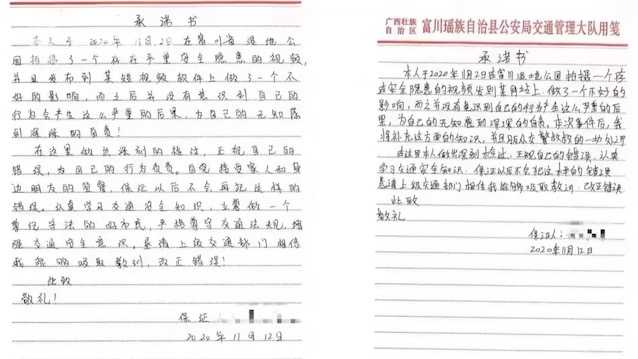 承诺书
本人于2020年11月2日在富川省湿地公
园拍摄了一个存在严重安全隐患的视频,
并且发布到某短视频软件上做了一个不
好的影响,而之后并没有意识到自己的
行为会产生这么严重的后果,为自己的无知感
到深深的自责!
在这里做出深刻的检讨,正视自己的
错误,为自己的行为负责。自觉接受家人和身
边朋友的监督,保证以后不会再犯这样的
错误。认真学习交通安全知识,主要做一个
遵纪守法的好市民,严格遵守交通法规,增
强交通安全意识,恳请上级交通部门相信
我能够吸取教训,改正错误!
此致
敬礼!
保证
2020年11月12日
广西壮族自治区 富川瑶族自治县公安局交通管理大队用笺
承诺书
本人于2020年11月2日在富川湿地公园拍摄一个存在
安全隐患的视频发到某网站上做了一个不好的
影响,而之后没有意识到自己的行为会这么严重的后
果,为自己的无知感到深深的自责,本次事件后,我
将补充这方面的知识,并且服从交警的一切处理
在这里本人做出深刻检讨,正视自己的错误,认真
学习交通安全知识。保证以后不会犯这样的错误
恳请上级交通部门相信我能够吸取教训,改正错误
此致
敬礼
保证人:
2020年11月12日